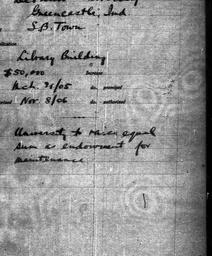 Greencastle, Ind.
S.B. Town
Library Building
$50,000
Mch. 31/05 do. promised
Nov. 8/06 do. authorized
University to raise equal
sum as endowment for
maintenance